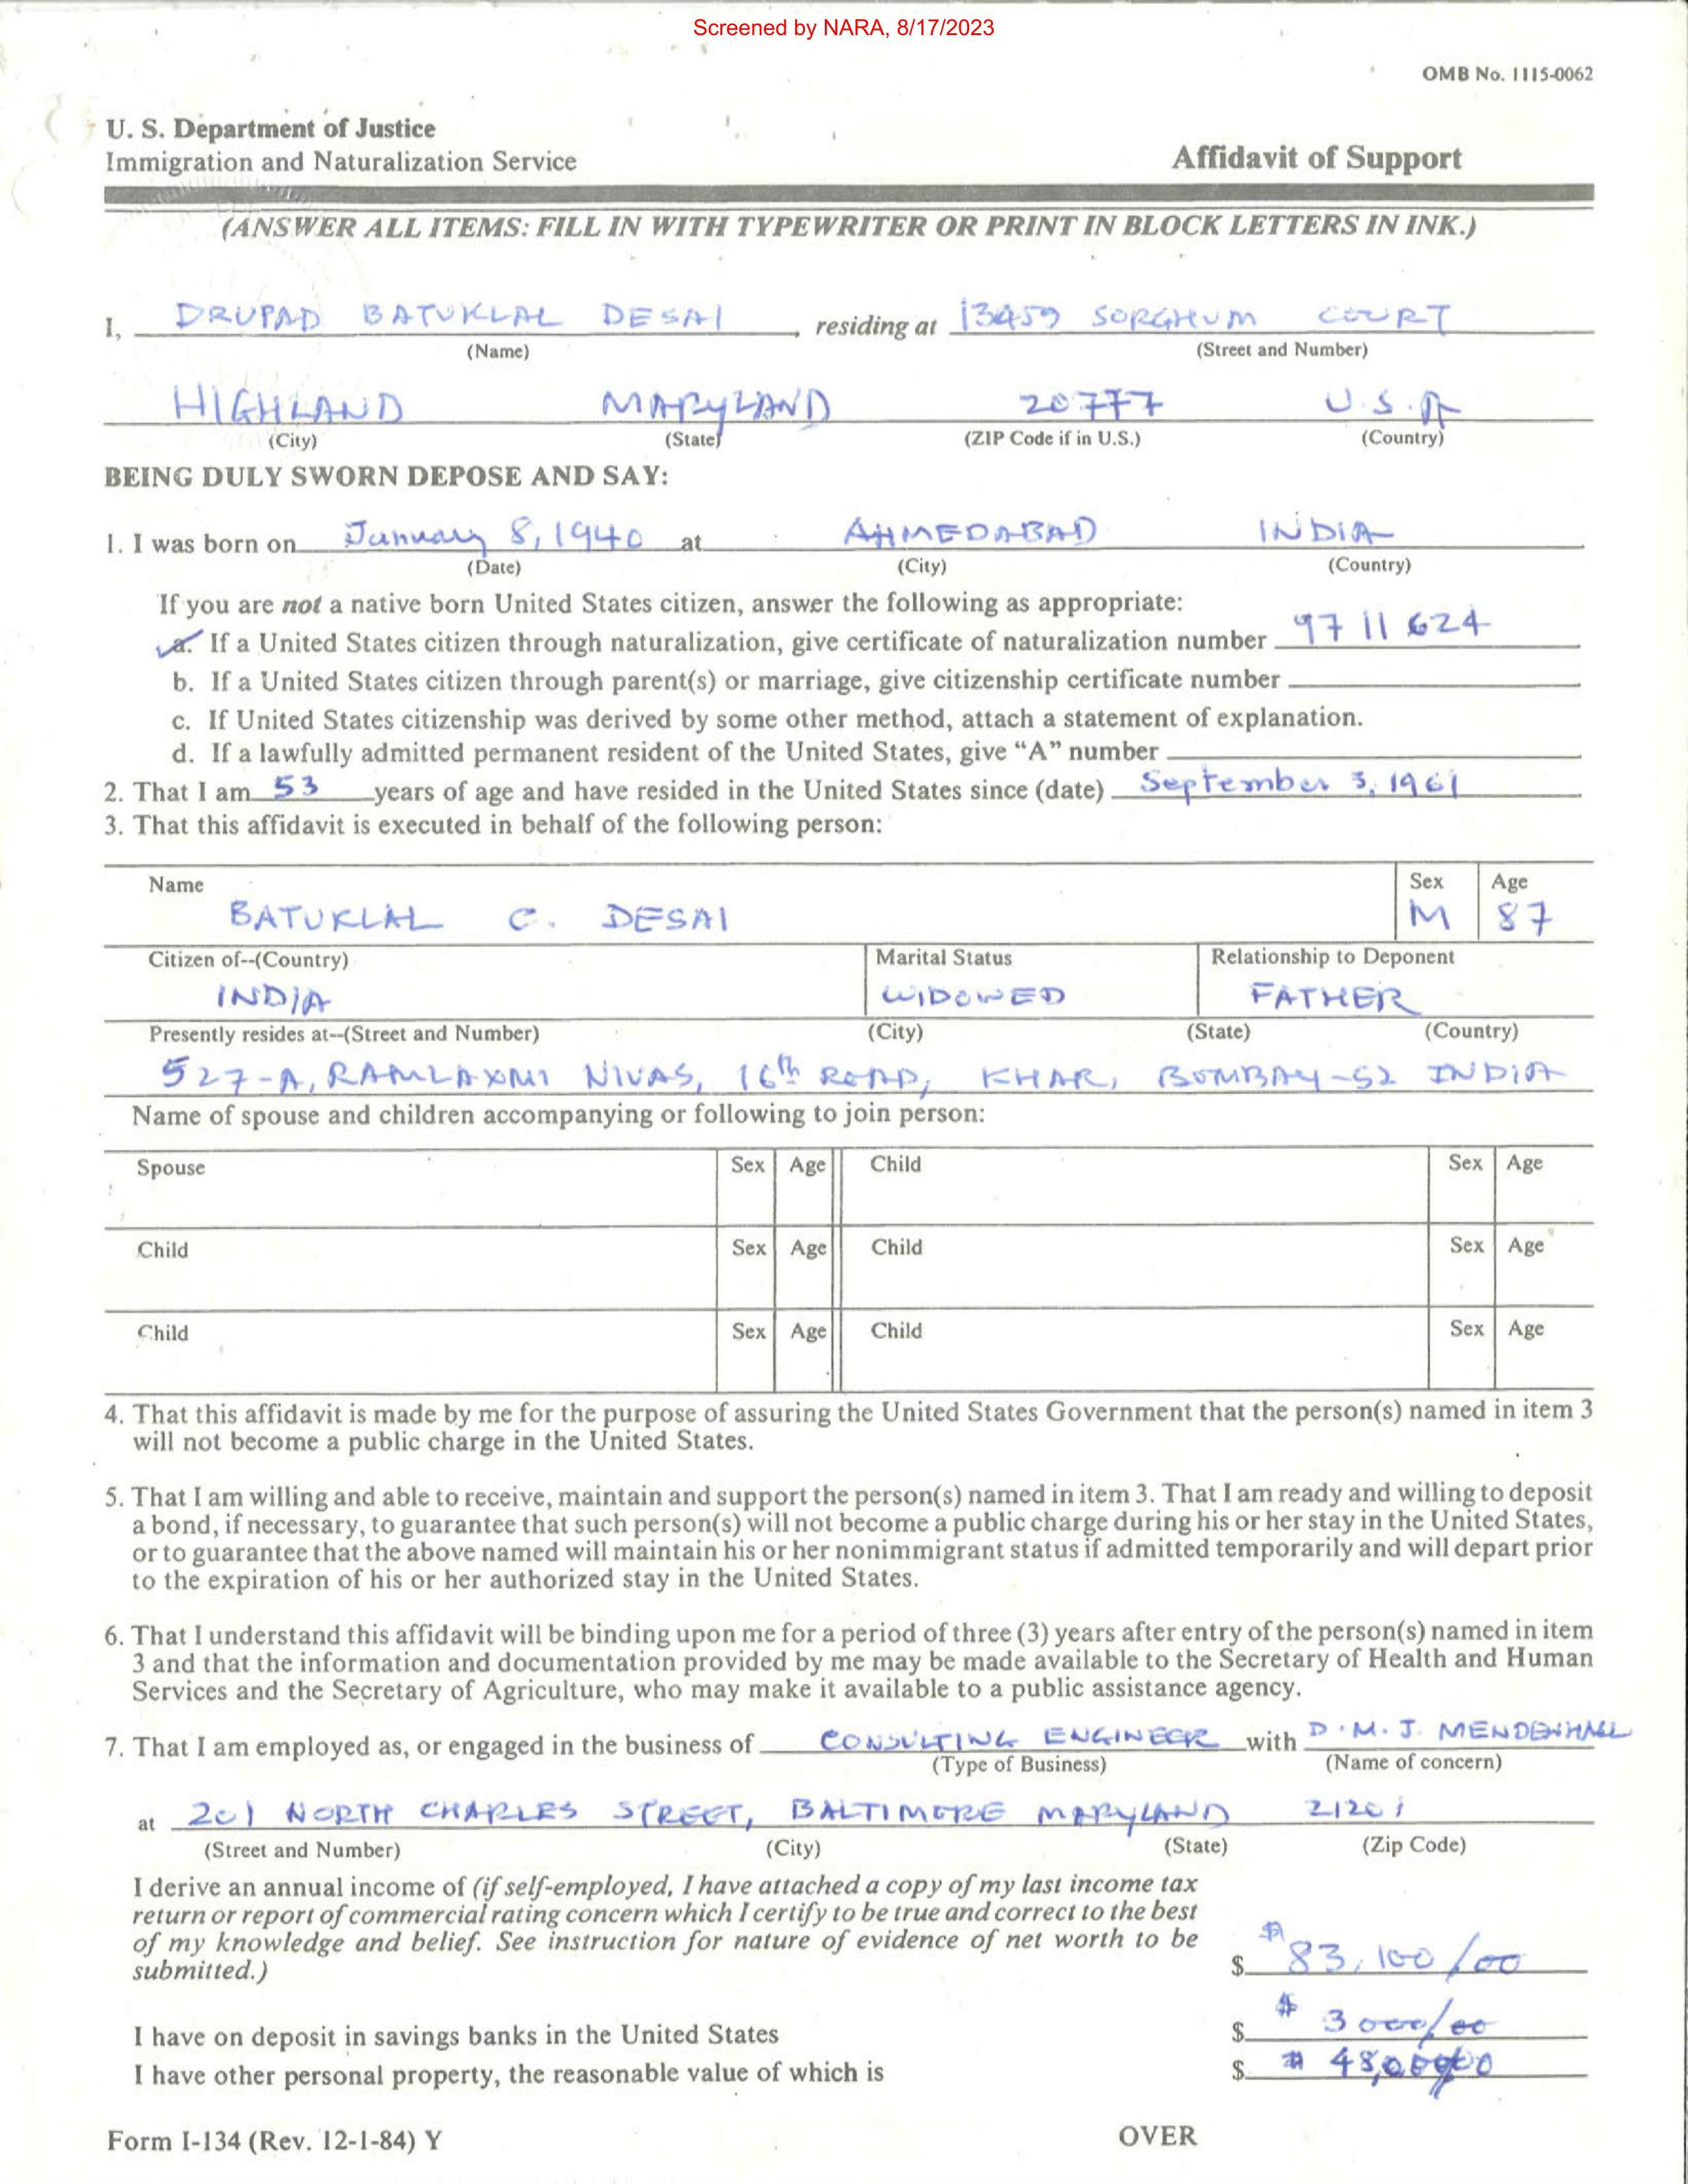 Screened by NARA, 8/17/2023
OMB No. 1115-0062
U. S. Department of Justice
Immigration and Naturalization Service
Affidavit of Support
(ANSWER ALL ITEMS: FILL IN WITH TYPEWRITER OR PRINT IN BLOCK LETTERS IN INK.)
I, DRUPAD BATUKLAL DESAI, residing at 13459 SORGHUM COURT
(Name) (Street and Number)
HIGHLAND MARYLAND 20777 U.S.A
(City) (State) (ZIP Code if in U.S.) (Country)
BEING DULY SWORN DEPOSE AND SAY:
1. I was born on January 8, 1940 at AHMEDABAD INDIA
(Date) (City) (Country)
If you are not a native born United States citizen, answer the following as appropriate:
a. If a United States citizen through naturalization, give certificate of naturalization number 9711624
b. If a United States citizen through parent(s) or marriage, give citizenship certificate number
c. If United States citizenship was derived by some other method, attach a statement of explanation.
d. If a lawfully admitted permanent resident of the United States, give “A” number
2. That I am 53 years of age and have resided in the United States since (date) September 3, 1961
3. That this affidavit is executed in behalf of the following person:
Name Sex Age
BATUKLAL C. DESAI M 87
Citizen of--(Country) Marital Status Relationship to Deponent
INDIA WIDOWED FATHER
Presently resides at--(Street and Number) (City) (State) (Country)
527-A, RAMLAXMI NIVAS, 16th ROAD, KHAR, BOMBAY-52 INDIA
Name of spouse and children accompanying or following to join person:
Spouse Sex Age Child Sex Age
Child Sex Age Child Sex Age
Child Sex Age Child Sex Age
4. That this affidavit is made by me for the purpose of assuring the United States Government that the person(s) named in item 3
will not become a public charge in the United States.
5. That I am willing and able to receive, maintain and support the person(s) named in item 3. That I am ready and willing to deposit
a bond, if necessary, to guarantee that such person(s) will not become a public charge during his or her stay in the United States,
or to guarantee that the above named will maintain his or her nonimmigrant status if admitted temporarily and will depart prior
to the expiration of his or her authorized stay in the United States.
6. That I understand this affidavit will be binding upon me for a period of three (3) years after entry of the person(s) named in item
3 and that the information and documentation provided by me may be made available to the Secretary of Health and Human
Services and the Secretary of Agriculture, who may make it available to a public assistance agency.
7. That I am employed as, or engaged in the business of CONSULTING ENGINEER with D.M.J. MENDENHALL
(Type of Business) (Name of concern)
at 201 NORTH CHARLES STREET, BALTIMORE MARYLAND 21201
(Street and Number) (City) (State) (Zip Code)
I derive an annual income of (if self-employed, I have attached a copy of my last income tax
return or report of commercial rating concern which I certify to be true and correct to the best
of my knowledge and belief. See instruction for nature of evidence of net worth to be
submitted.) $ $ 83,100/00
I have on deposit in savings banks in the United States $ $ 3000/00
I have other personal property, the reasonable value of which is $ $
Form I-134 (Rev. 12-1-84) Y OVER